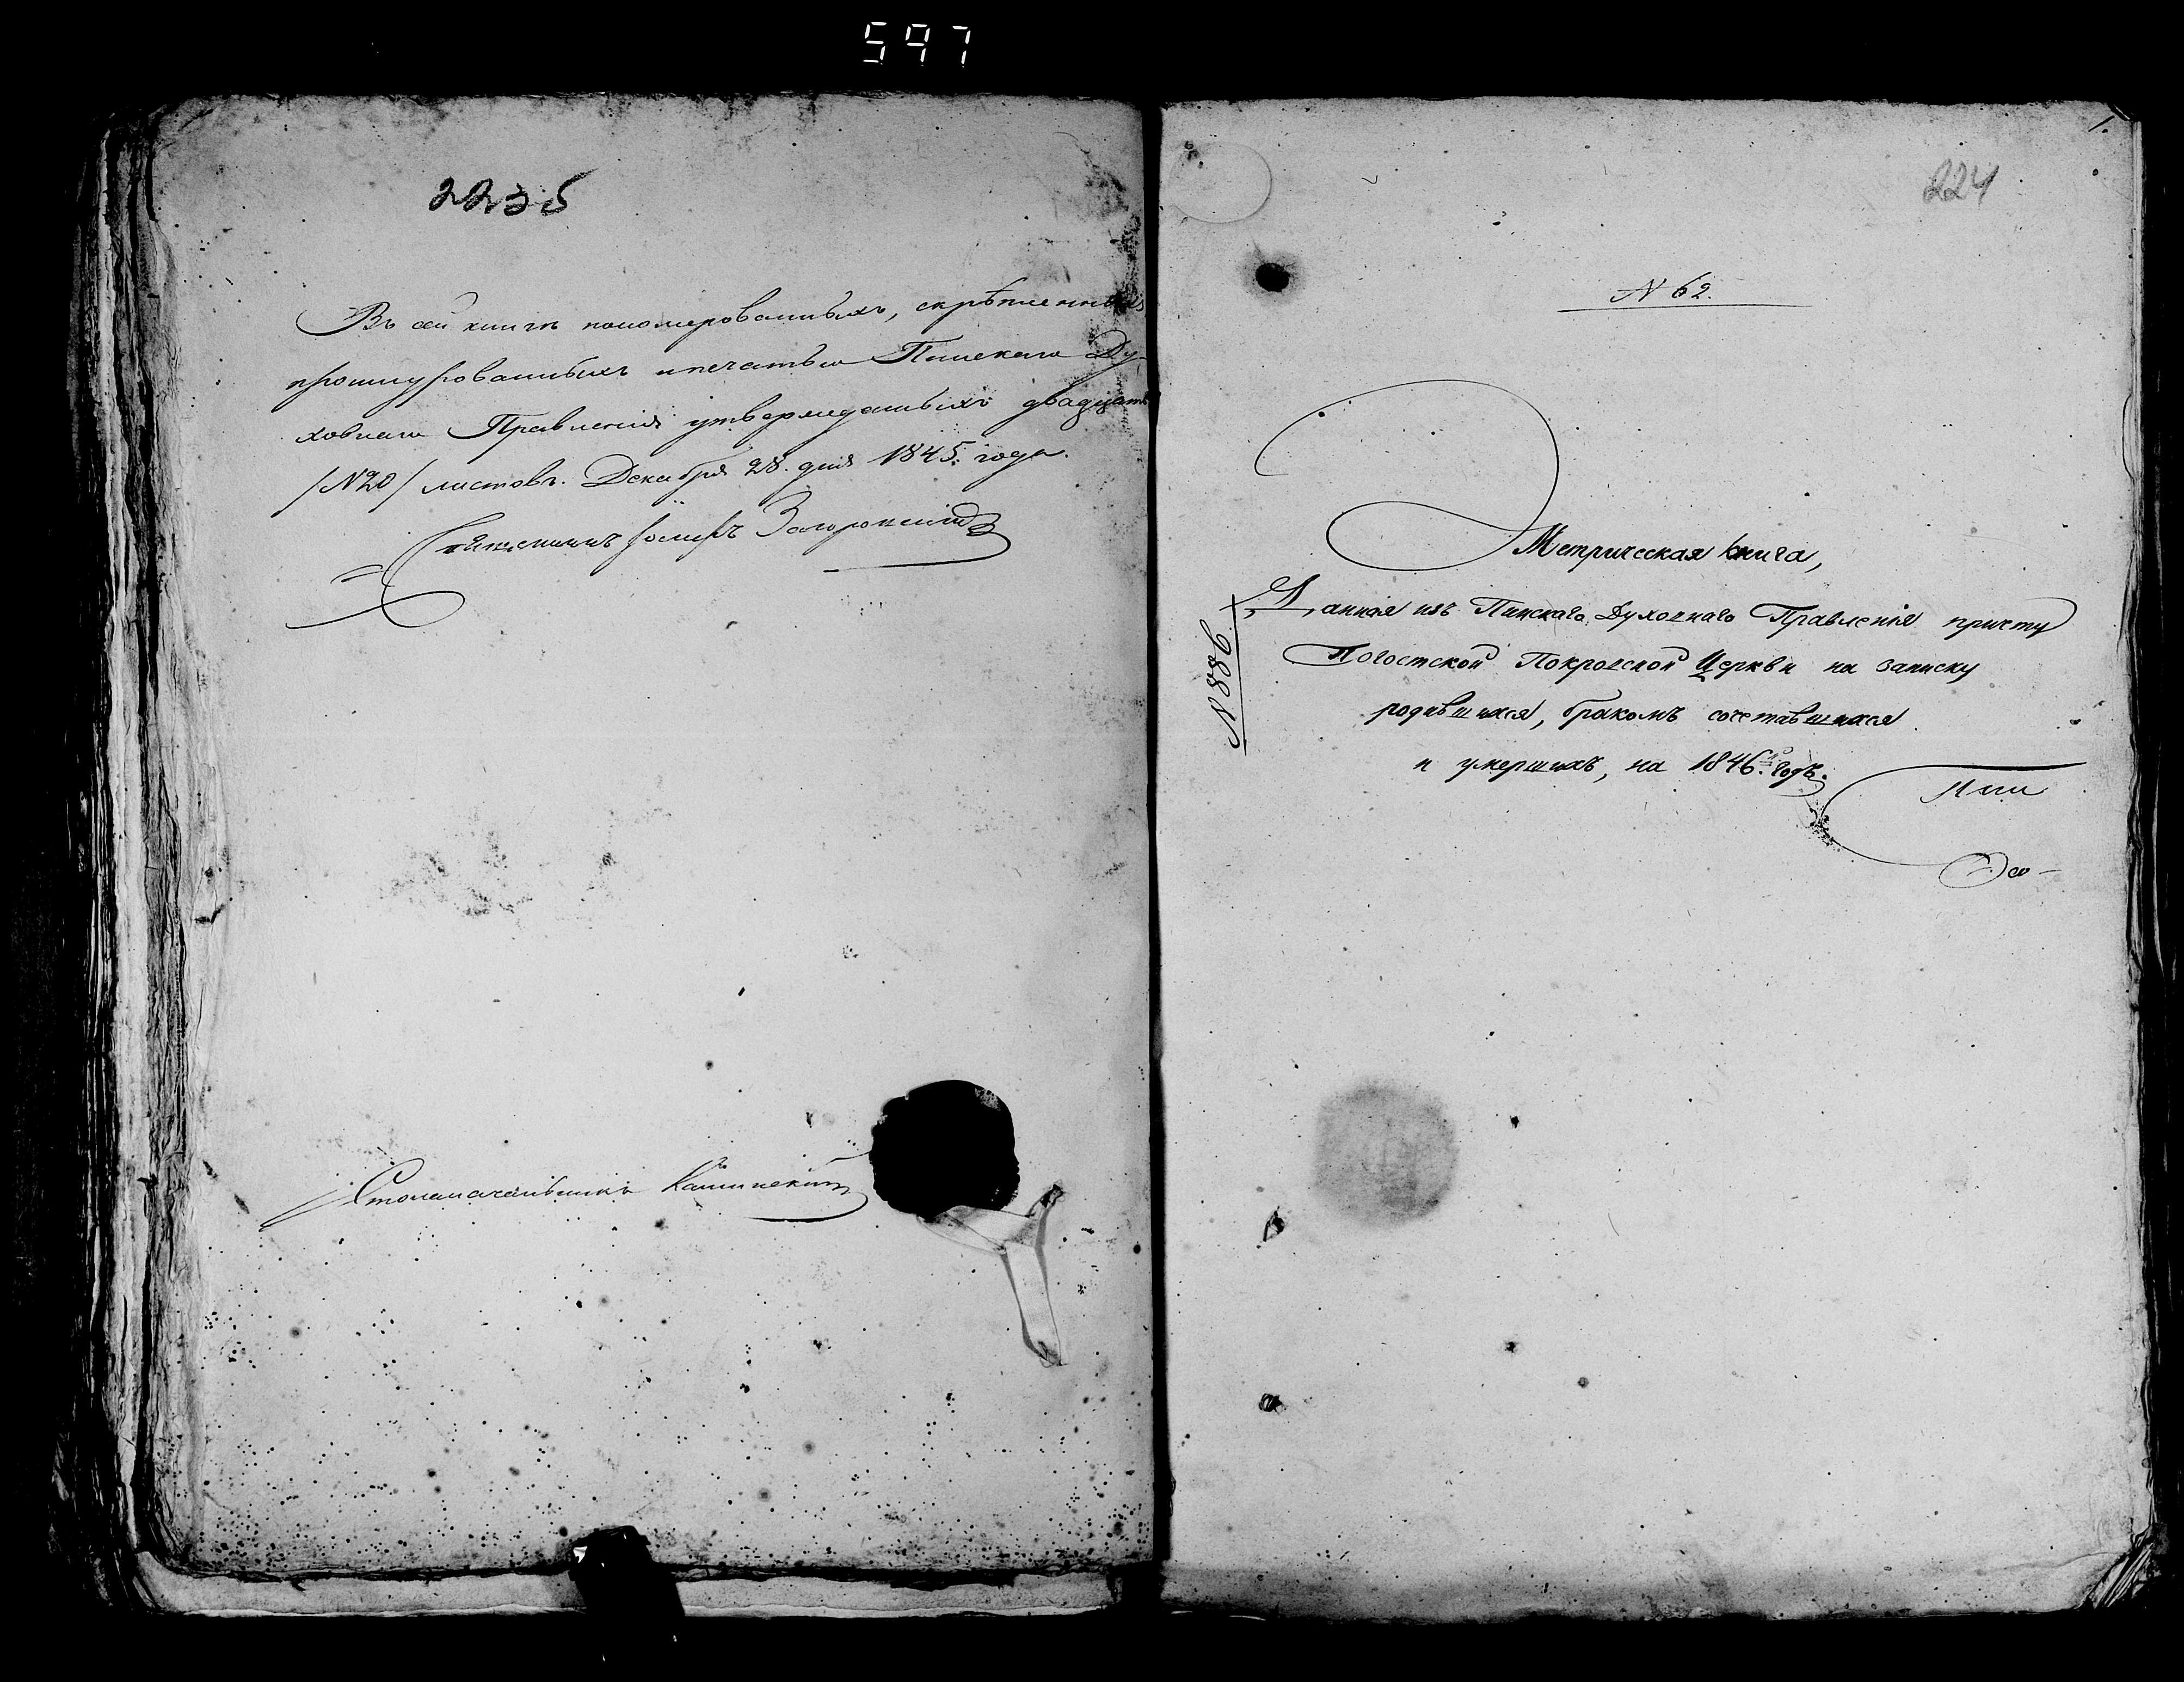 597
2235
Въ сей книгѣ пономерованныхъ, скрѣпленныхъ
прошнурованныхъ и печатью Пинскаго Ду-
ховнаго Правленія утвержденныхъ двадцать
/№20/ листовъ. Декабря 28. дня 1845. года.
Священникъ Іосифъ
Столоначальникъ
1.
224
N 62.
Метрическая книга,
Данная изъ Пинскаго Духовнаго Правленія причту
Погостской Покровской Церкви на записку
родившихся, бракомъ сочетавшихся
и умершихъ, на 1846й годъ.
N 886